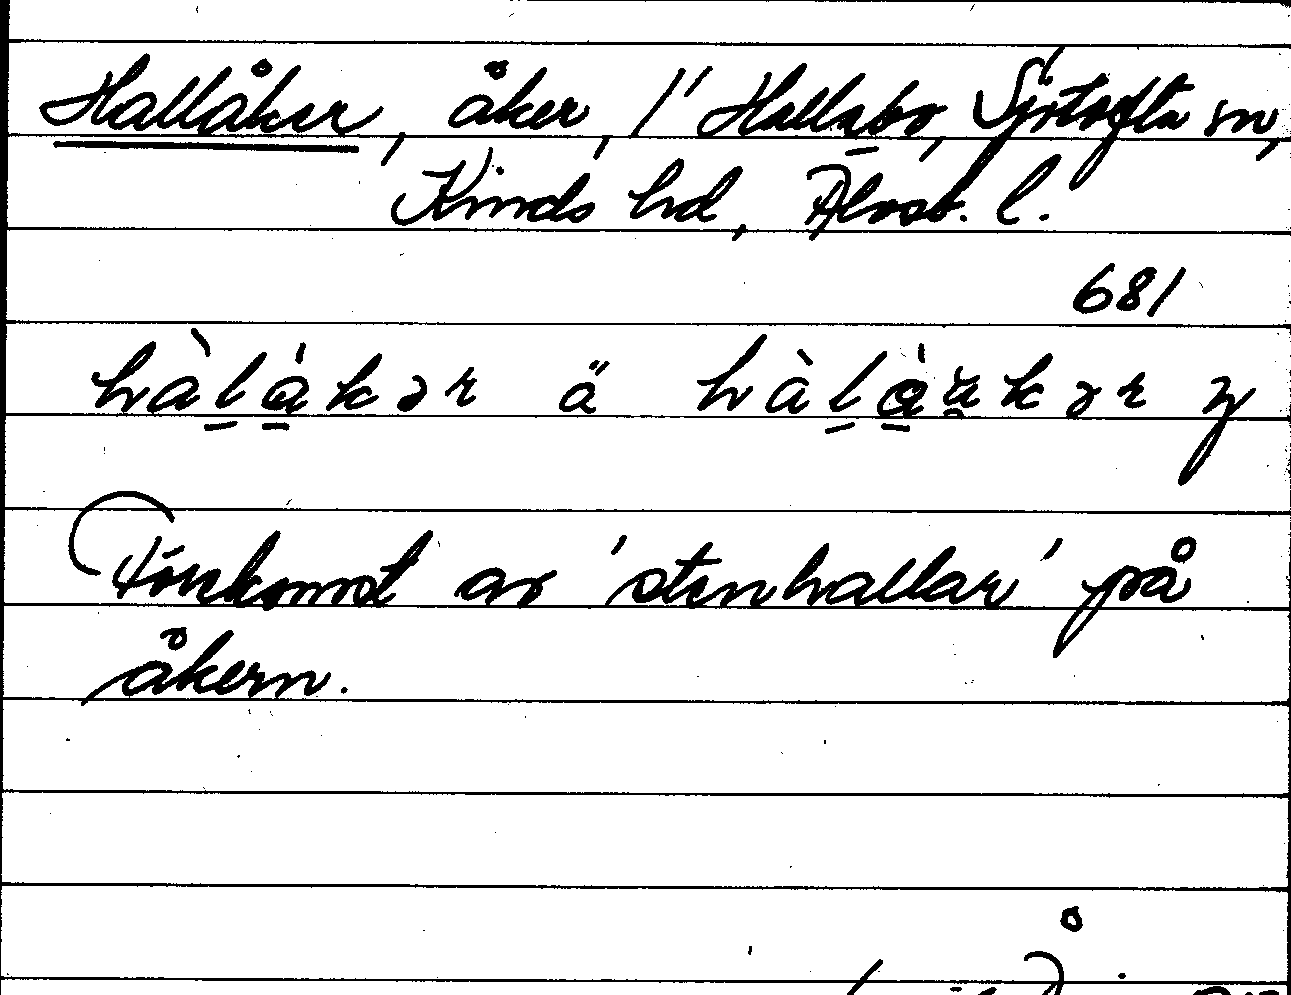 Hallåker, åker, 1/1 Hallabo, Sjötofta sn,
Kinds hd, Älvsb. l.
681
hàlåkər ä hàlåkər
Förekomst av 'stenhallar' på
åkern.